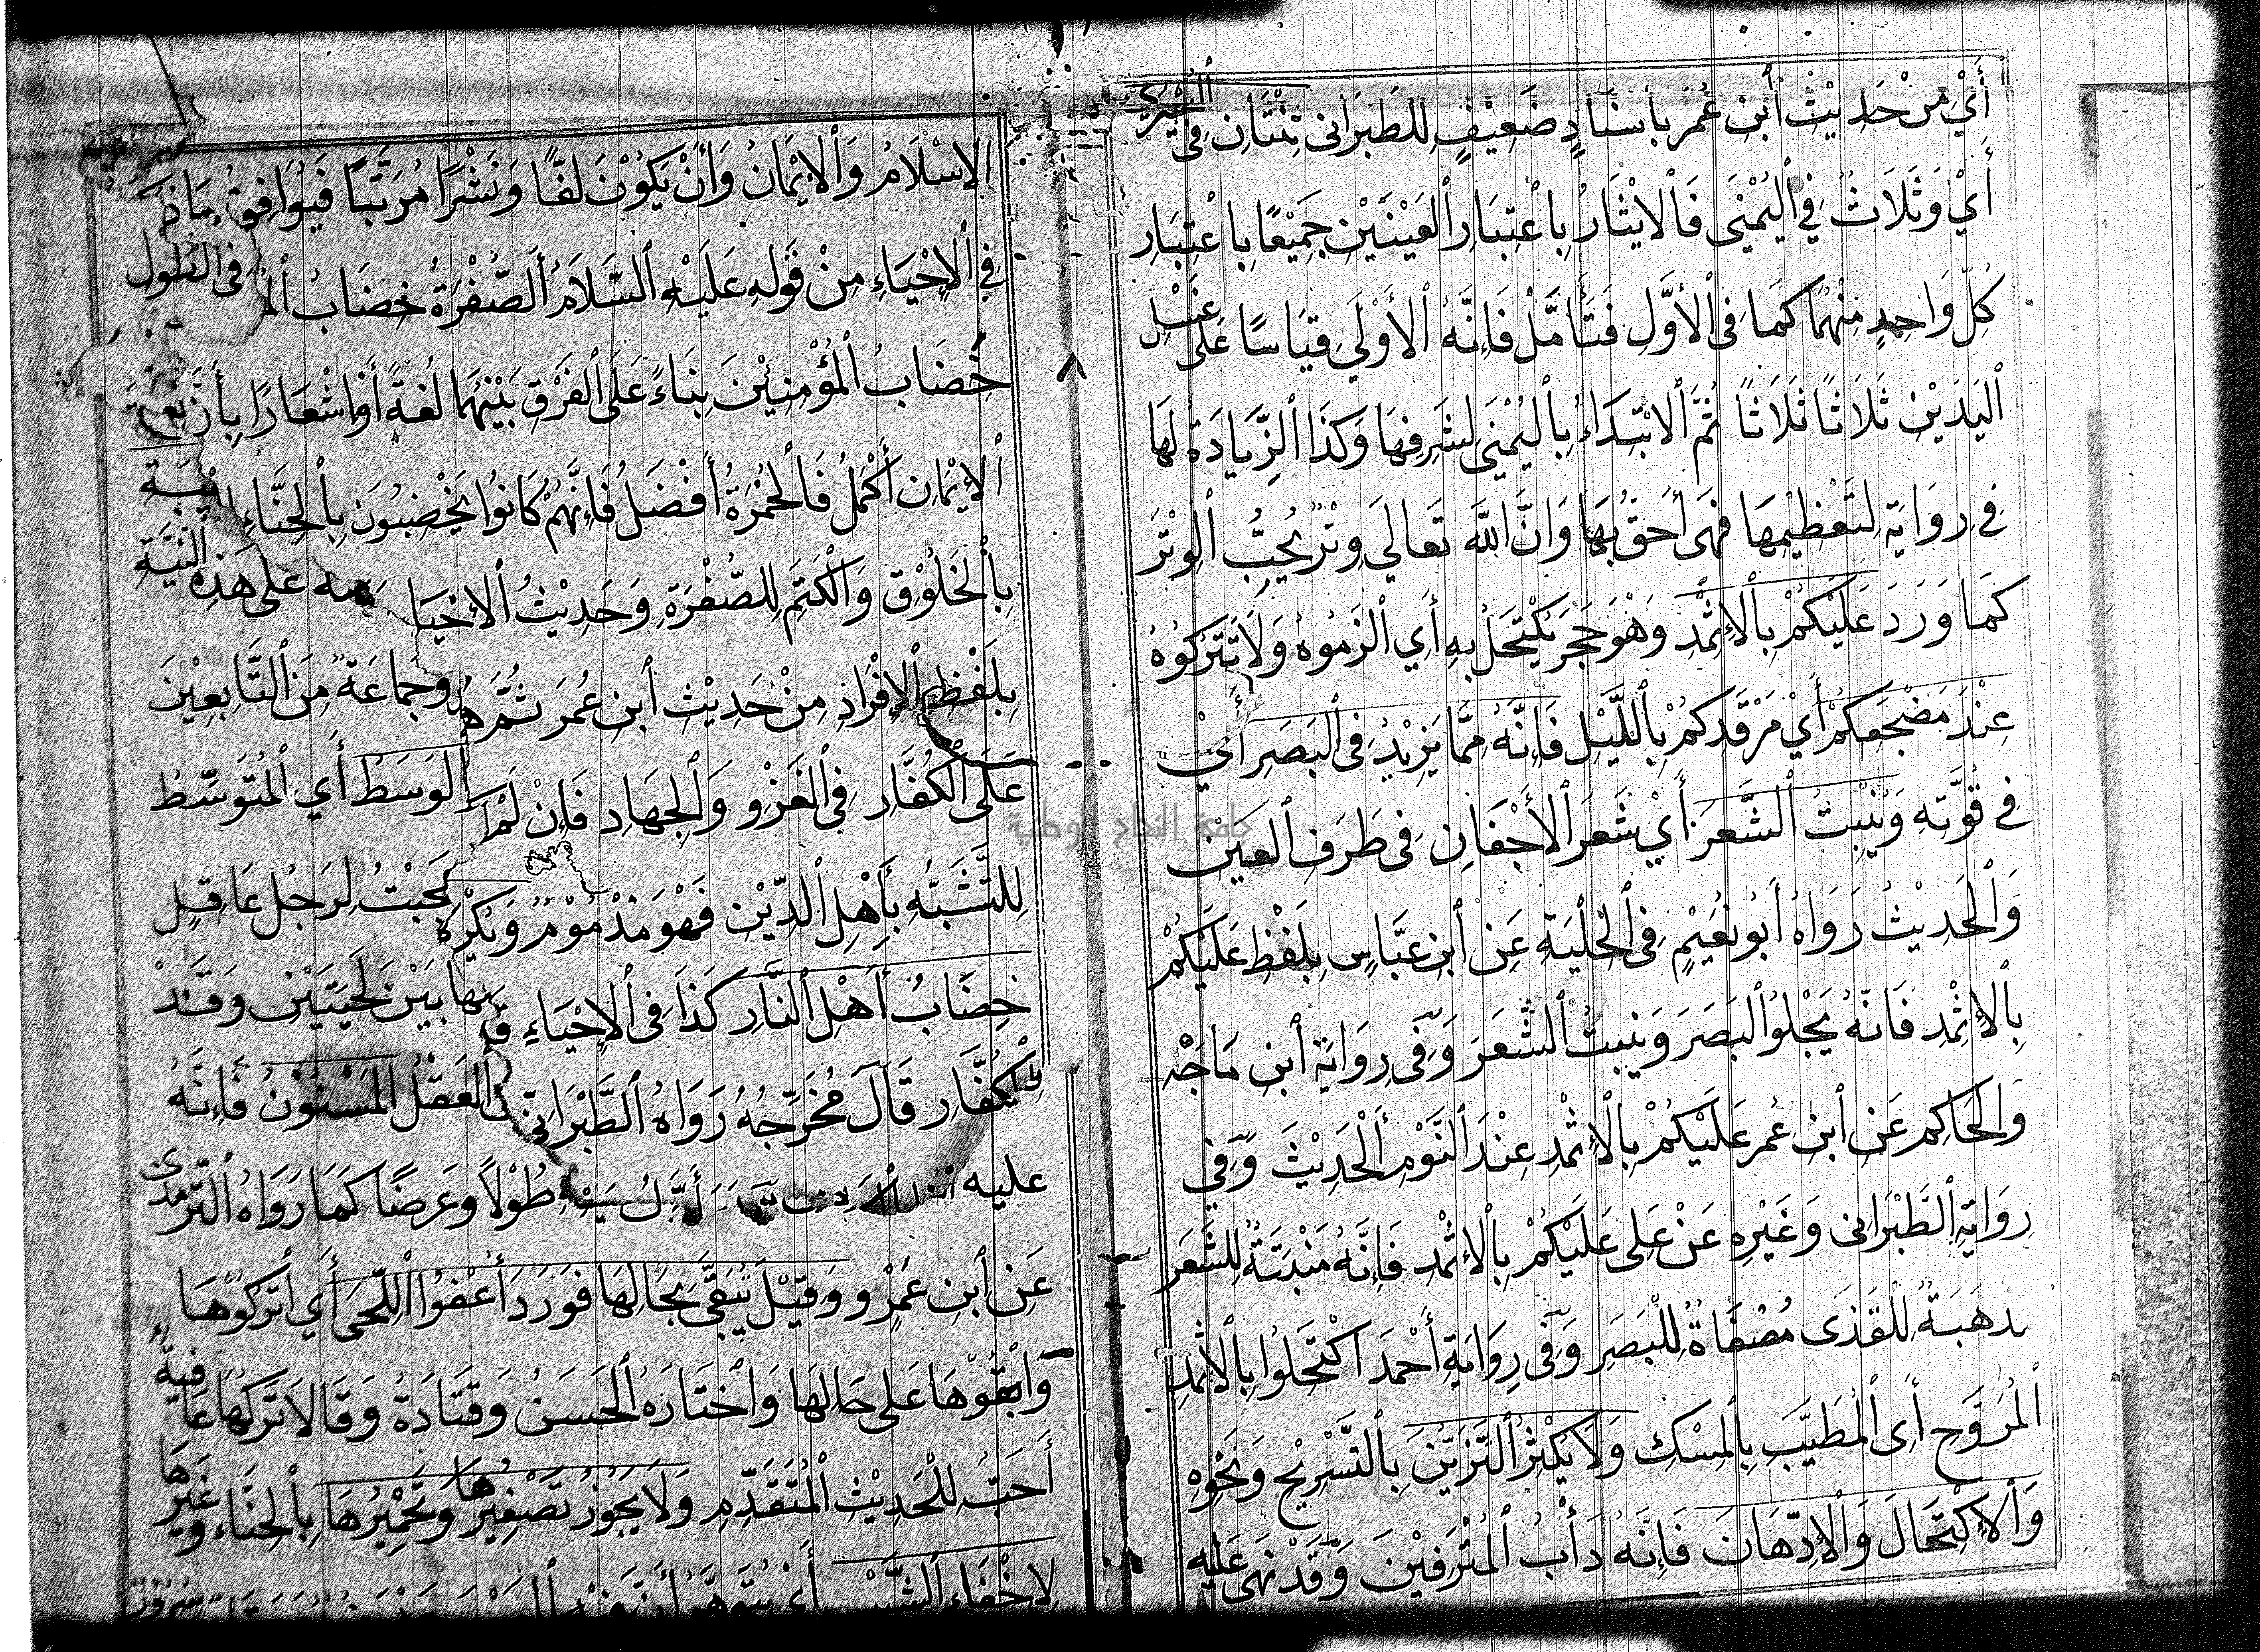 أَيْ مِنْ حَدِيْثِ ٱبن عُمَر بِاسنَادٍ ضَعِيْفٍ لِلطَبَرَانى ثِنْتَانِ فِى اليُسْرَى
أَيْ وَثَلَاثٌ فِي ٱليُمْنَى فَٱلايْثَارُ بِاعْتِبَارِ ٱلعَيْنَيْن جَمِيْعًا بِاعْتِبَارِ
كُلّ وَاحِدٍ مِنْهُمَا كَمَا فِى ٱلأَوَّلِ فَتَأَمَّلْ فَإِنَّهُ ٱلأَوْلَى قِيَاسًا عَلَى غَسْلِ
ٱليَدَيْن ثَلَاثًا ثَلَاثًا ثُمَّ ٱلابْتِدَاءُ بِٱليُمْنَى لِشَرَفِهَا وَكَذَا ٱلزِّيَادَةُ لَهَا
فِى رِوَايَةٍ لِتَعْظِيْمِهَا فَهِىَ أَحَقُّ بِهَا وَانَّ ٱللَّهَ تَعَالَى وِتْرٌ يُحِبُّ ٱلوِتْرَ
كَمَا وَرَدَ عَلَيْكُمْ بِٱلإِثْمِدِ وَهُوَ حَجَرٌ يُكْتَحَلُ بِهِ أَيِ ٱلزَمُوهُ وَلَا تَتْرُكُوهُ
عِنْدَ مَضْجَعِكُمْ أَيْ مَرْقَدِكُمْ بِٱللَّيْلِ فَإِنَّهُ مِمَّا يَزِيْدُ فِى ٱلبَصَرِ أَيْ
فِى قُوَّتِهِ وَيُنْبِتُ ٱلشَّعَرَ أَيْ شَعَرَ ٱلأَجْفَانِ فِى طَرَفِ ٱلعَيْنِ
وَٱلحَدِيْثُ رَوَاهُ أَبُو نُعَيْمٍ فِى ٱلحِلْيَةِ عَنِ ٱبنِ عَبَّاسٍ بِلَفْظِ عَلَيْكُمْ
بِٱلإِثْمِدِ فَانَّهُ يَجْلُو ٱلبَصَرَ وَيُنبِتُ ٱلشَّعَرَ وَفِى رِوَايَةِ ٱبنِ مَاجَه
وَٱلحَاكِم عَنِ ٱبنِ عُمَر عَلَيْكُمْ بِٱلإِثْمِدِ عِنْدَ ٱلنَّوْمِ ٱلحَدِيْثَ وَفِي
رِوَايَةِ ٱلطَّبْرَانى وَغَيْرِهِ عَنْ عَلى عَلَيْكُمْ بِٱلإِثْمِدِ فَإِنَّهُ مَنْبَتَةٌ لِلشَّعَر
مذهَبَةٌ لِلْقَذَى مُصْفَاةٌ لِلْبَصَرِ وَفِى رِوَايَةِ أَحْمَدَ اكْتَحِلُوا بِٱلاثْمِدِ
ٱلمُرَوَّحِ أَىِ ٱلمُطَيَّبِ بِٱلمِسْكِ وَلَا يُكْثِرُ ٱلتَزَيُّنَ بِٱلتَّسْرِيْحِ وَنَحْوِهِ
وَٱلاكْتِحَالَ وَٱلإِدِّهَانَ فَإِنَّهُ دَأْبُ ٱلمُتْرَفِيْنَ وَقَدْ نَهَى عَلَيْهِ
ٱلاِسْلَامُ وَٱلايْمَانُ وَأَنْ يَكُوْنَ لَفًّا وَنَشْرًا مُرَتَّبًا فَيُوَافِقُ مَاذ
فِي ٱلإِحْيَاءِ مِنْ قَوْلِهِ عَلَيْهِ ٱلسَّلَامُ ٱلصُّفْرَةُ خِضَابُ ٱلمـ فى القول
خِضَابُ ٱلمُؤْمِنِيْنَ بِنَاءً عَلَى ٱلفَرْقِ بَيْنَهُمَا لُغَةً أَوِ اشْعَارًا بِأَنَّ
ٱلإِيْمَانِ أَكْمَلُ فَالحُمْرَةُ أَفْضَلُ فَإِنَّهُمْ كَانُوا يَخْضِبُوْنَ بِٱلحِنَّاءِ
بِٱلخَلُوْقِ وَٱلكَتَمِ لِلصُّفْرَةِ وَحَدِيْثُ ٱلاحْيَا عَلى هَذِهِ النيَّةِ
بِلَفْظِ ٱلإِفْرَادِ مِنْ حَدِيْث ٱبنِ عُمَرَ ثُمَّ هُ وَجَمَاعَةٌ مِنَ ٱلتَّابِعِيْنَ
عَلَى ٱلكُفَّارِ فِي ٱلغَزْوِ وَٱلجِهَادِ فَإِنْ لَمْ ٱلوَسَطُ أَيِ ٱلمُتَوَسِّطُ
لِلتَّشَبُّهِ بِأَهْلِ ٱلدِّيْنِ فَهُوَ مَذْمُوْمٌ وَيُكْرَهُ عَجِبْتُ لِرَجُلٍ عَاقِلٍ
خِضَابُ أَهْلِ ٱلنَّارِ كَذَا فِى ٱلاِحْيَاءِ بَيْنَ لِحْيَتَيْنِ وَقَدْ
لكُفَّارِ قَالَ مُخَرِّجُهُ رَوَاهُ ٱلطَّبْرَانِيّ ٱلفَضْلُ ٱلمَسْنُوْنُ فَإِنَّهُ
عليه طُوْلًا وَعَرضًا كَمَا رَوَاهُ ٱلتّرمذى
عَنِ ٱبنِ عَمْرٍو وَقِيْلَ تُبَقَّى بِحَالِهَا فَوَرَدَ أَعْفُوا ٱللِّحَى أَيِ ٱتْرُكُوْهَا
وَابْقُوْهَا عَلى حَالِهَا وَاخْتَارَهُ ٱلحَسَنُ وَقَتَادَةُ وَقَالَا تَرْكُهَا عَافِيَةً
أَحَبُّ لِلْحَدِيْثِ ٱلمُتَقَدِّمِ وَلَا يَجُوْزُ تَصْفِيْرُهَا وَتَحْمِيْرُهَا بِٱلحِنَّاءِ وَغَيْرِهَا
لِاخْفَاءِ ٱلشَّيْبِ
جامعة النجاح الوطنية